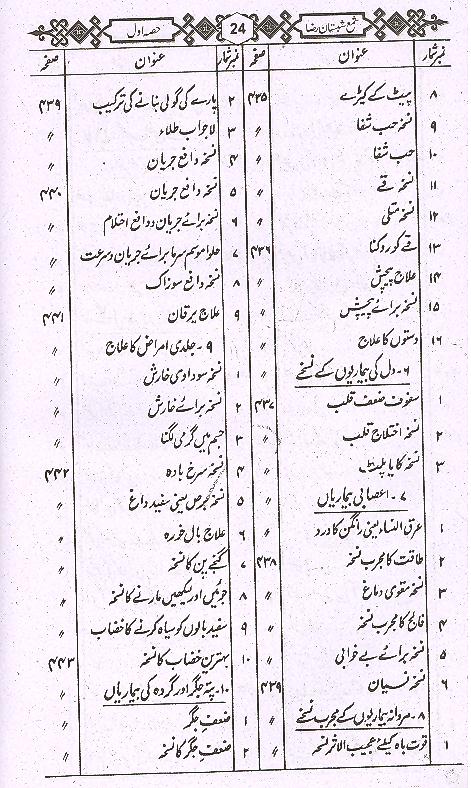 شمع شبستان رضا 24 حصہ اول
نمبر شمار عنوان صفحہ
۸ پیٹ کے کیڑے ۴۳۵
۹ نسخہ حب شفا 〃
۱۰ حب شفا 〃
۱۱ نسخہ قے 〃
۱۲ نسخہ متلی 〃
۱۳ قے کو روکنا ۴۳۶
۱۴ علاج پیچش 〃
۱۵ نسخہ برائے پیچش 〃
۱۶ دستوں کا علاج 〃
۶۔ دل کی بیماریوں کے نسخے
۱ سفوف ضعف قلب ۴۳۷
۲ نسخہ اختلاج قلب 〃
۳ نسخہ کایا پلٹ 〃
۷۔ اعصابی بیماریاں
۱ عرق النساء یعنی رانگن کا درد 〃
۲ طاقت کا مجرب نسخہ ۴۳۸
۳ نسخہ مقوی دماغ 〃
۴ فالج کا مجرب نسخہ 〃
۵ نسخہ برائے بے خوابی 〃
۶ نسخہ نسیان ۴۳۹
۸۔ مردانہ بیماریوں کے مجرب نسخے
۱ قوت باہ کیلئے عجیب الاثر نسخہ 〃
نمبر شمار عنوان صفحہ
۲ پارے کی گولی بنانے کی ترکیب ۴۳۹
۳ لاجراب طلاء 〃
۴ نسخہ دافع جریان 〃
۵ نسخہ دافع جریان ۴۴۰
۶ نسخہ برائے جریان و دافع احتلام 〃
۷ حلوا موسم سرما برائے جریان و سرعت 〃
۸ نسخہ دافع سوزاک 〃
۹ علاج یرقان ۴۴۱
۹۔ جلدی امراض کا علاج 〃
۱ نسخہ سوداوی خارش 〃
۲ نسخہ برائے خارش 〃
۳ جسم میں گرمی لگنا 〃
۴ نسخہ سرخ بادہ ۴۴۲
۵ نسخہ برص یعنی سفید داغ 〃
۶ علاج بال خورہ 〃
۷ گنجے پن کا نسخہ 〃
۸ جوئیں اور لیکھیں مارنے کا نسخہ 〃
۹ سفید بالوں کو سیاہ کرنے کا خضاب 〃
۱۰ بہترین خضاب کا نسخہ ۴۴۳
۱۰۔ پتہ جگر اور گردہ کی بیماریاں
۱ ضعف جگر 〃
۲ ضعف جگر کا نسخہ 〃